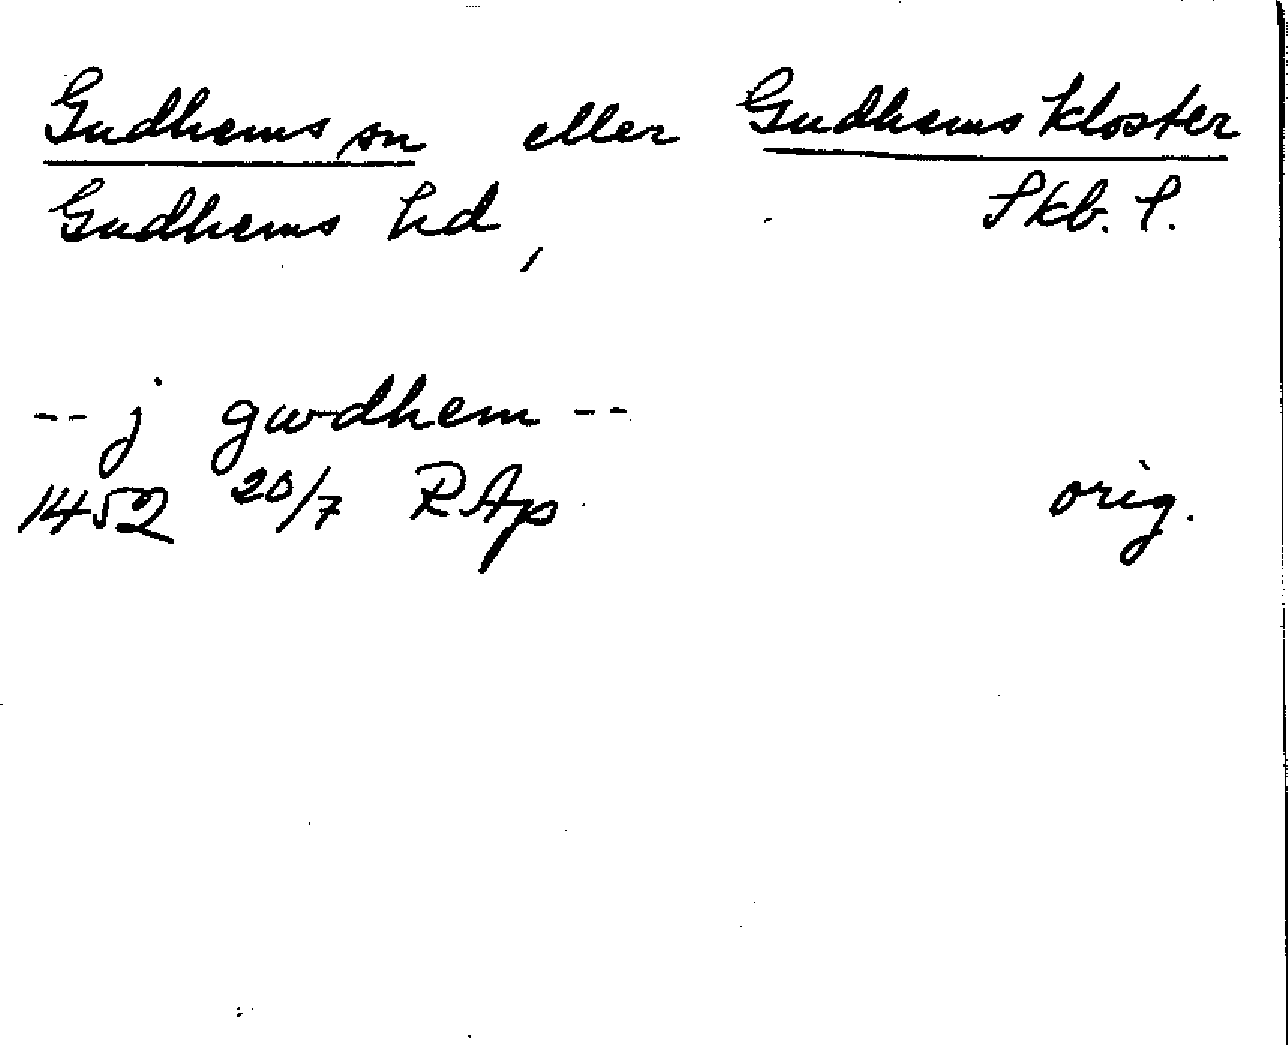 Gudhems sn eller Gudhems kloster
Gudhems hd, Skb. l.
-- j gwdhem --
1452 20/7 RAp orig.